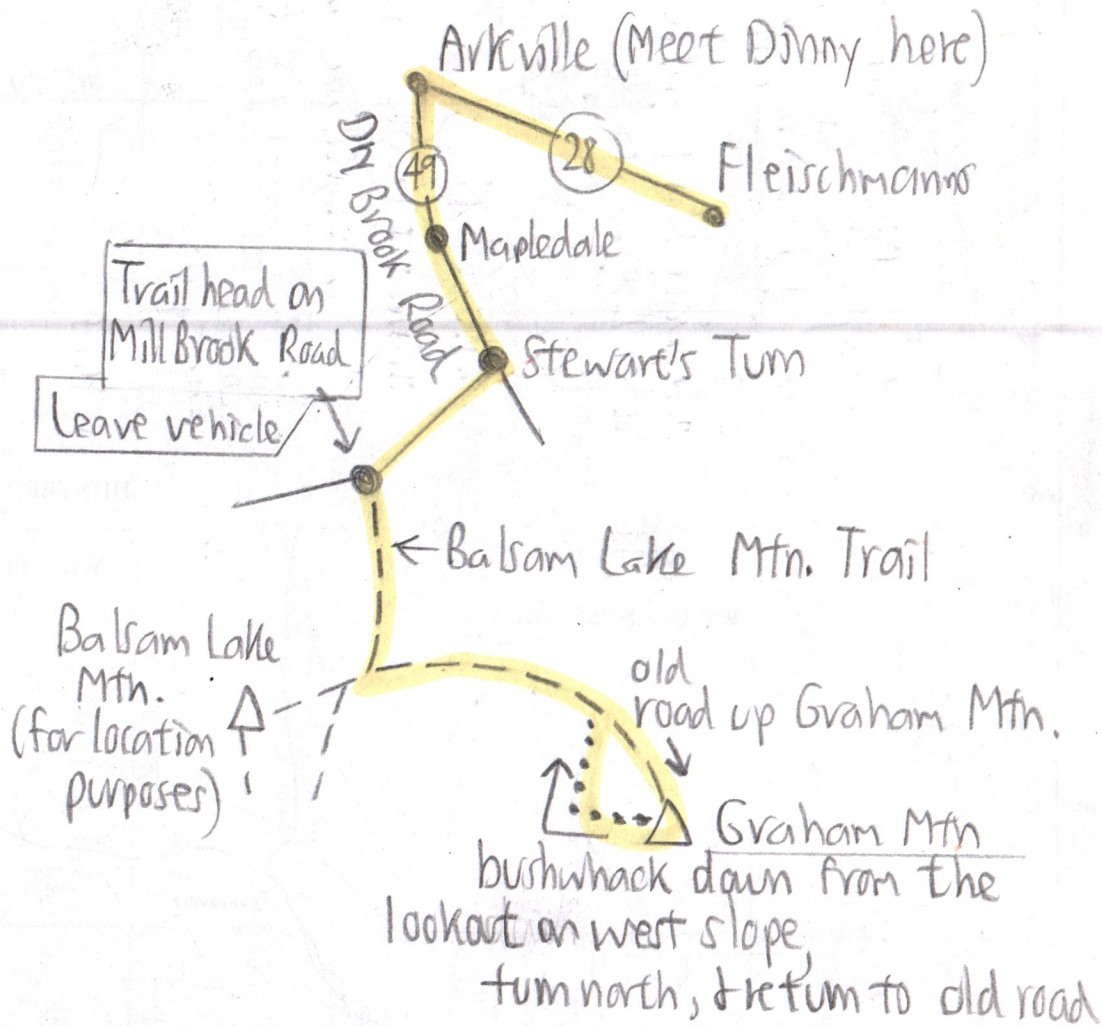 Arkville (Meet Dinny here)
28
49
Fleischmanns
Dry Brook Road
Mapledale
Trail head on
Mill Brook Road
Leave vehicle
Stewart's Turn
Balsam Lake Mtn. Trail
Balsam Lake
Mtn.
(for location
purposes)
old
road up Graham Mtn.
Graham Mtn
bushwhack down from the
lookout on west slope,
turn north, & return to old road